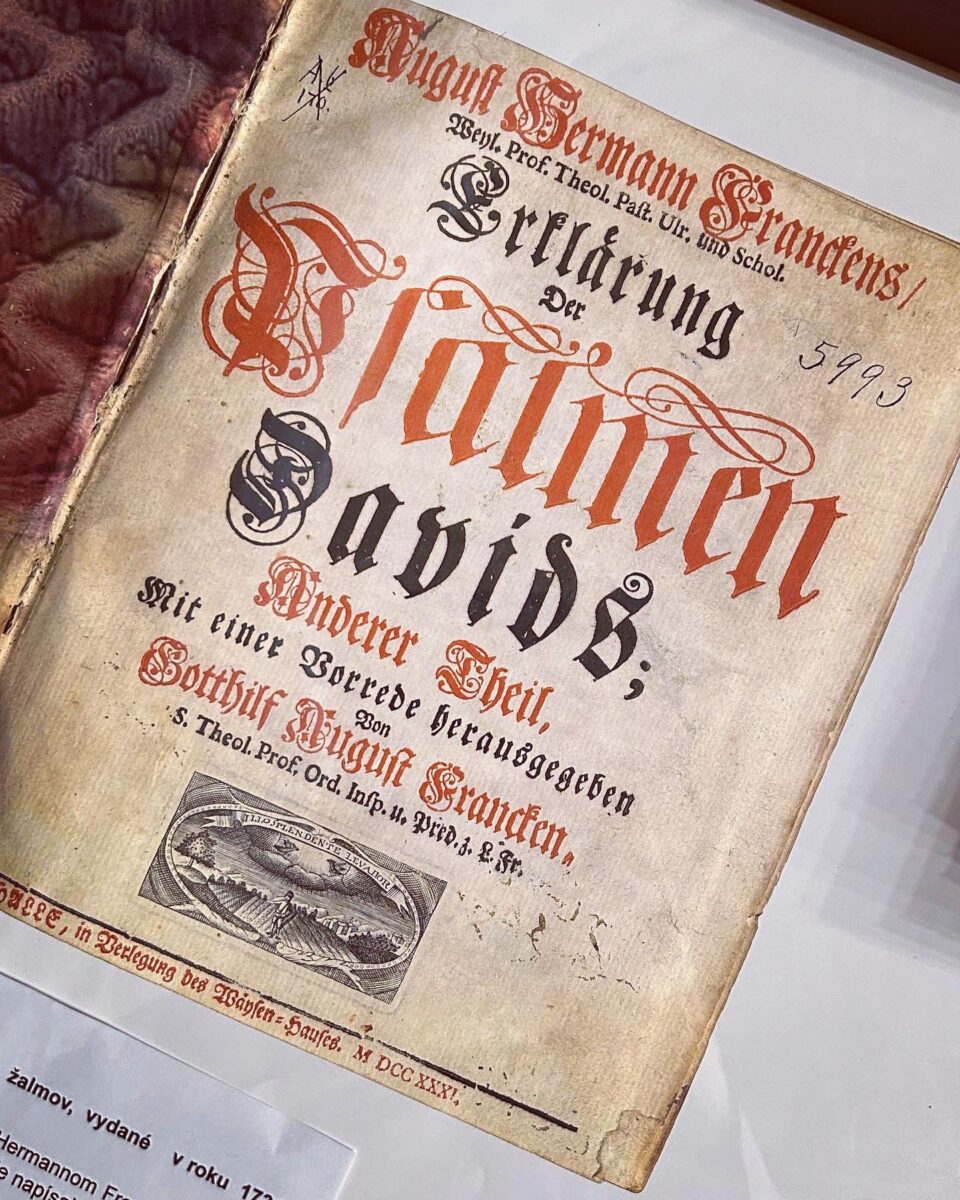 August Hermann Franckens/
Weyl. Prof. Theol. Past. Ulr. und Schol.
Erklårung
Der
Psalmen
Davids;
Anderer Theil,
Mit einer Vorrede herausgegeben
Von
Gotthilf August Francken,
S. Theol. Prof. Ord. Insp. u. Pred. z. L. Fr.
5993
ILLO SPLENDENTE LEVABOR
HALLE, in Verlegung des Wäysen-Hauses. M DCC XXXI.
žalmov, vydané v roku
Hermannom